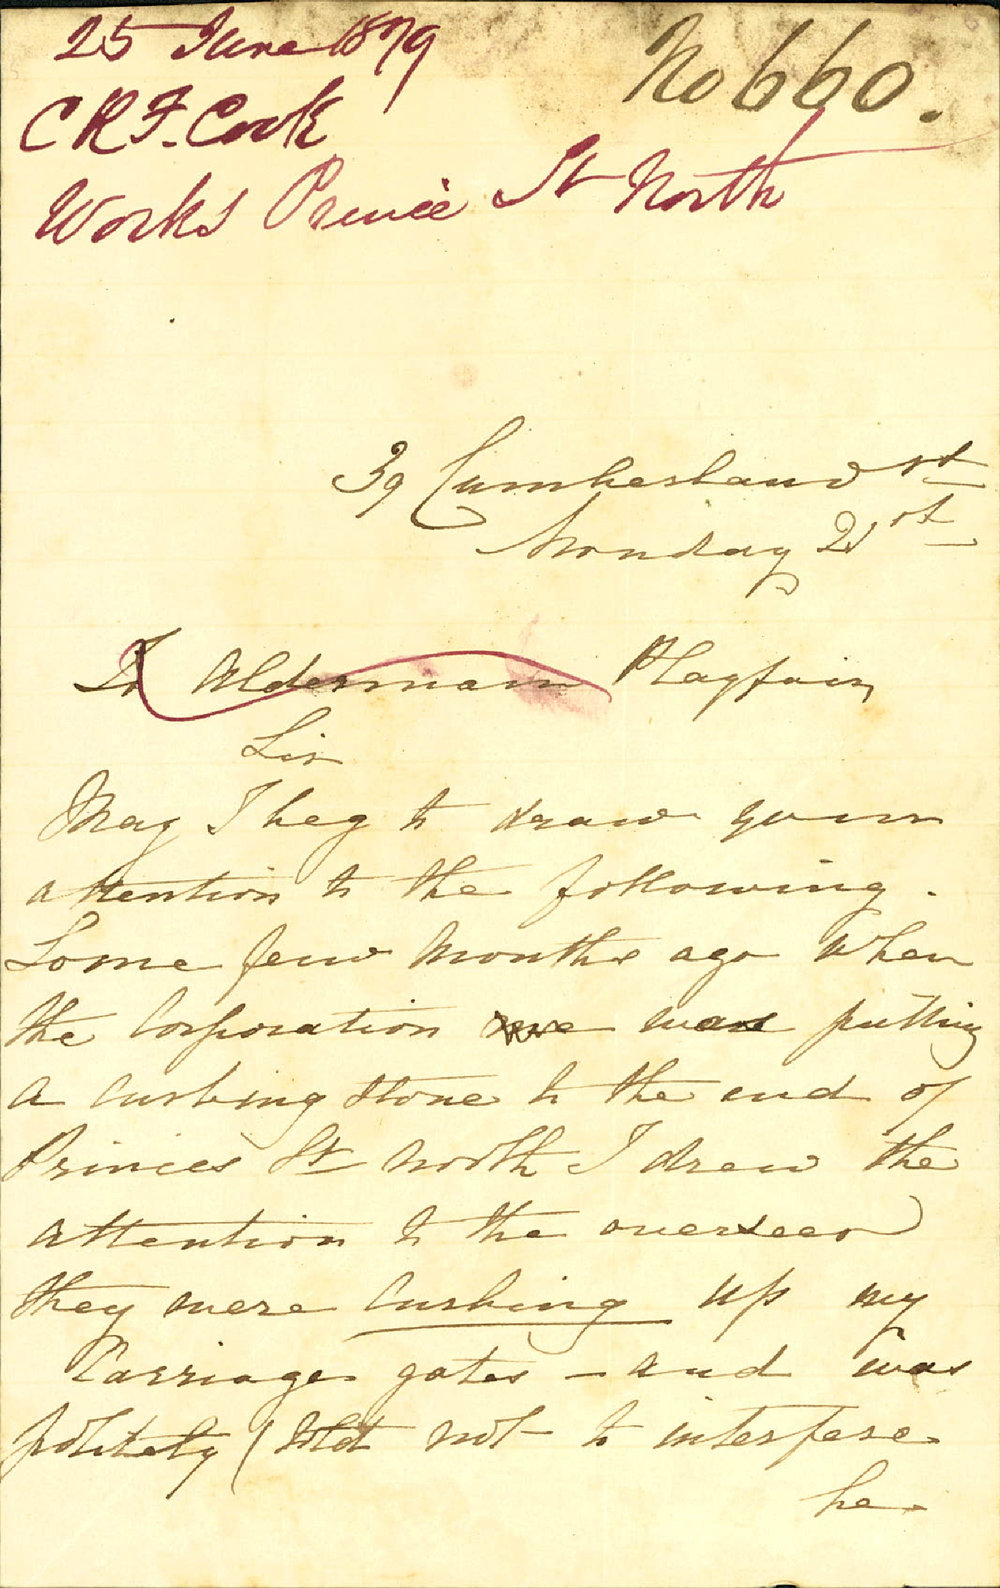 25 June 1879
No 660.
C R F. Cook
Works Prince St North
39 Cumberland st
Monday 21st
To Alderman Playfair
Sir
May I beg to draw your
attention to the following.
Some few Months ago When
the Corporation was putting
a Curbing Stone to the end of
Princes St North I drew the
attention to the overseer
they were Curbing up my
Carriage gates - and was
politely (told not to interfere
he